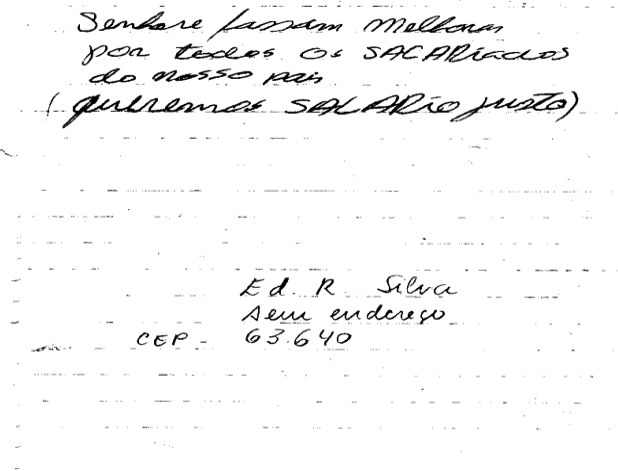 Senhore fassam Melhoras
por todos os SALARiados
do nosso pais
(queremos SALARio justo)
Ed. R. Silva
Sem endereço
CEP - 63.640